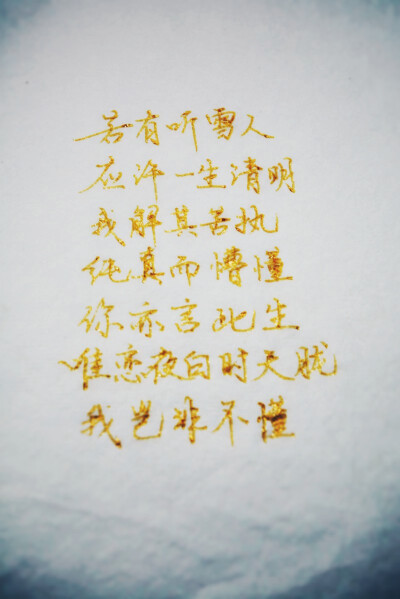 若有听雪人
应许一生清明
我解其苦执
纯真而懵懂
你亦言此生
唯恋夜白时天胧
我岂非不懂